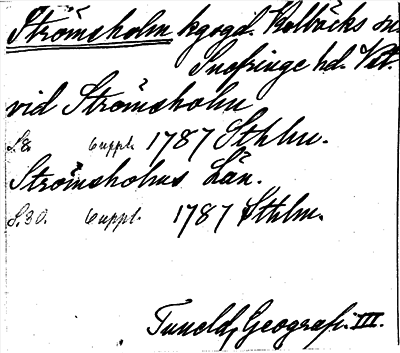 Strömsholm kgsgd. Kolbäcks sn.
Snefringe hd. Vstm.
vid Strömsholm
S.8. 6 uppl. 1787 Sthlm.
Strömsholms Län.
S.30. 6 uppl. 1787 Sthlm.
Tuneld, Geografi. III.